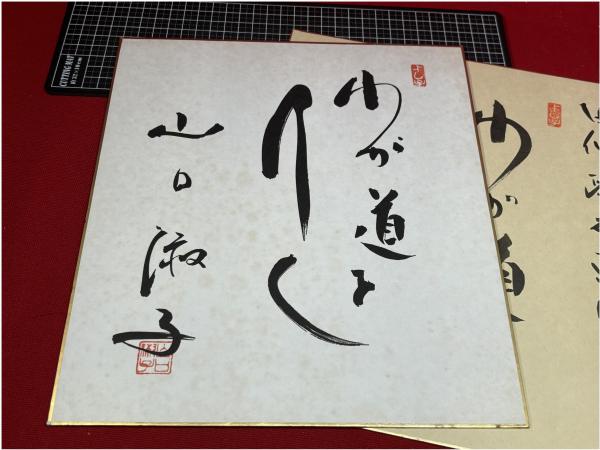 わが道を
行く
山口淑子
わが道
CUTTING MAT